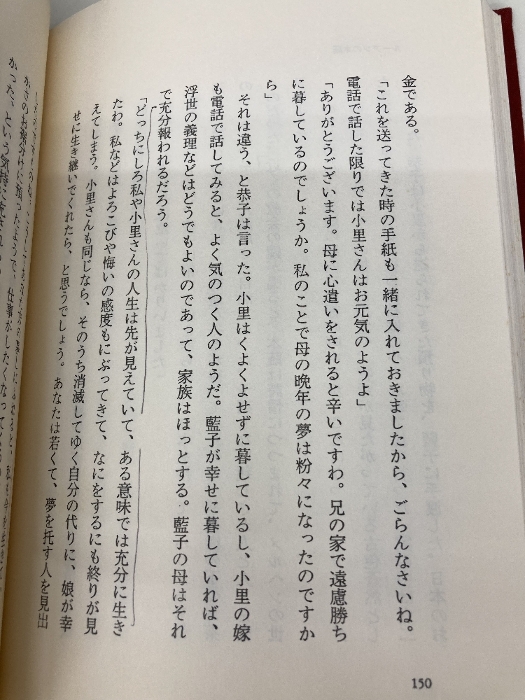 金である。
「これを送ってきた時の手紙も一緒に入れておきましたから、ごらんなさいね。
電話で話した限りでは小里さんはお元気のようよ」
「ありがとうございます。母に心遣いをされると辛いですわ。兄の家で遠慮勝ち
に暮しているのでしょうか。私のことで母の晩年の夢は粉々になったのですか
ら」
それは違う、と恭子は言った。小里はくよくよせずに暮しているし、小里の嫁
も電話で話してみると、よく気のつく人のようだ。藍子が幸せに暮していれば、
浮世の義理などはどうでもよいのであって、家族はほっとする。藍子の母はそれ
で充分報われるだろう。
「どっちにしろ私や小里さんの人生は先が見えていて、ある意味では充分に生き
たわ。私などはよろこびや悔いの感度もにぶってきて、なにをするにも終りが見
えてしまう。小里さんも同じなら、そのうち消滅してゆく自分の代りに、娘が幸
せに生き継いでくれたら、と思うでしょう。あなたは若くて、夢を托す人を見出
150